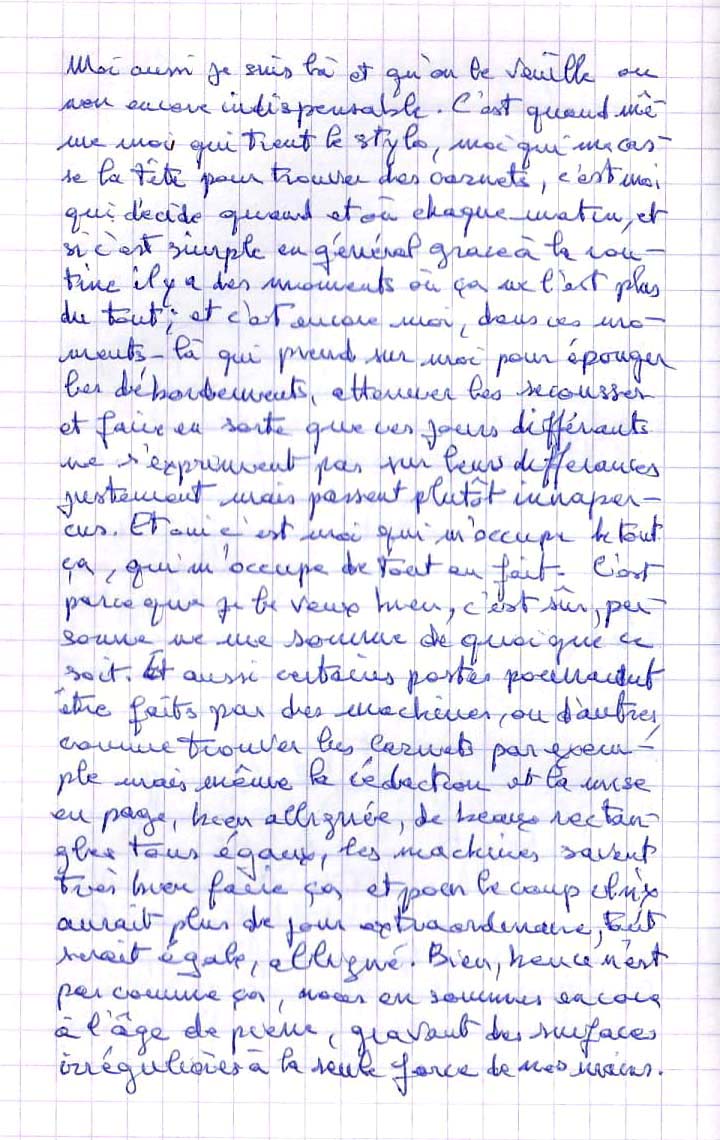 Moi aussi je suis là et qu'on le veuille ou
non encore indispensable. C'est quand mê-
me moi qui tient le stylo, moi qui me cas-
se la tête pour trouver des carnets, c'est moi
qui décide quand et où chaque matin, et
si c'est simple en général grace à la rou-
tine il y a des moments où ça ne l'est plus
du tout; et c'est encore moi, dans ces mo-
ments-là qui prend sur moi pour éponger
les débordements, attenuer les secousses
et faire en sorte que ces jours différants
ne s'expriment pas sur leurs differances
justement mais passent plutôt innaper-
cus. Et oui c'est moi qui m'occupe de tout
ça, qui m'occupe de tout en fait. C'est
parce que je le veux bien, c'est sûr, per-
sonne ne me somme de quoi que ce
soit. Et aussi certains postes pourraient
être faits par des machines, ou d'autres,
comme trouver les carnets par exem-
ple mais même la rédaction et la mise
en page, bien allignée, de beaux rectan-
gles tous égaux, les machines savent
très bien faire ça et pour le coup il n'y
aurait plus de jour extraordinaire, tout
serait égale, alligné. Bien, ce n'est
pas comme ça, nous en sommes encore
à l'âge de pierre, gravant des surfaces
irrégulières à la seule force de nos mains.